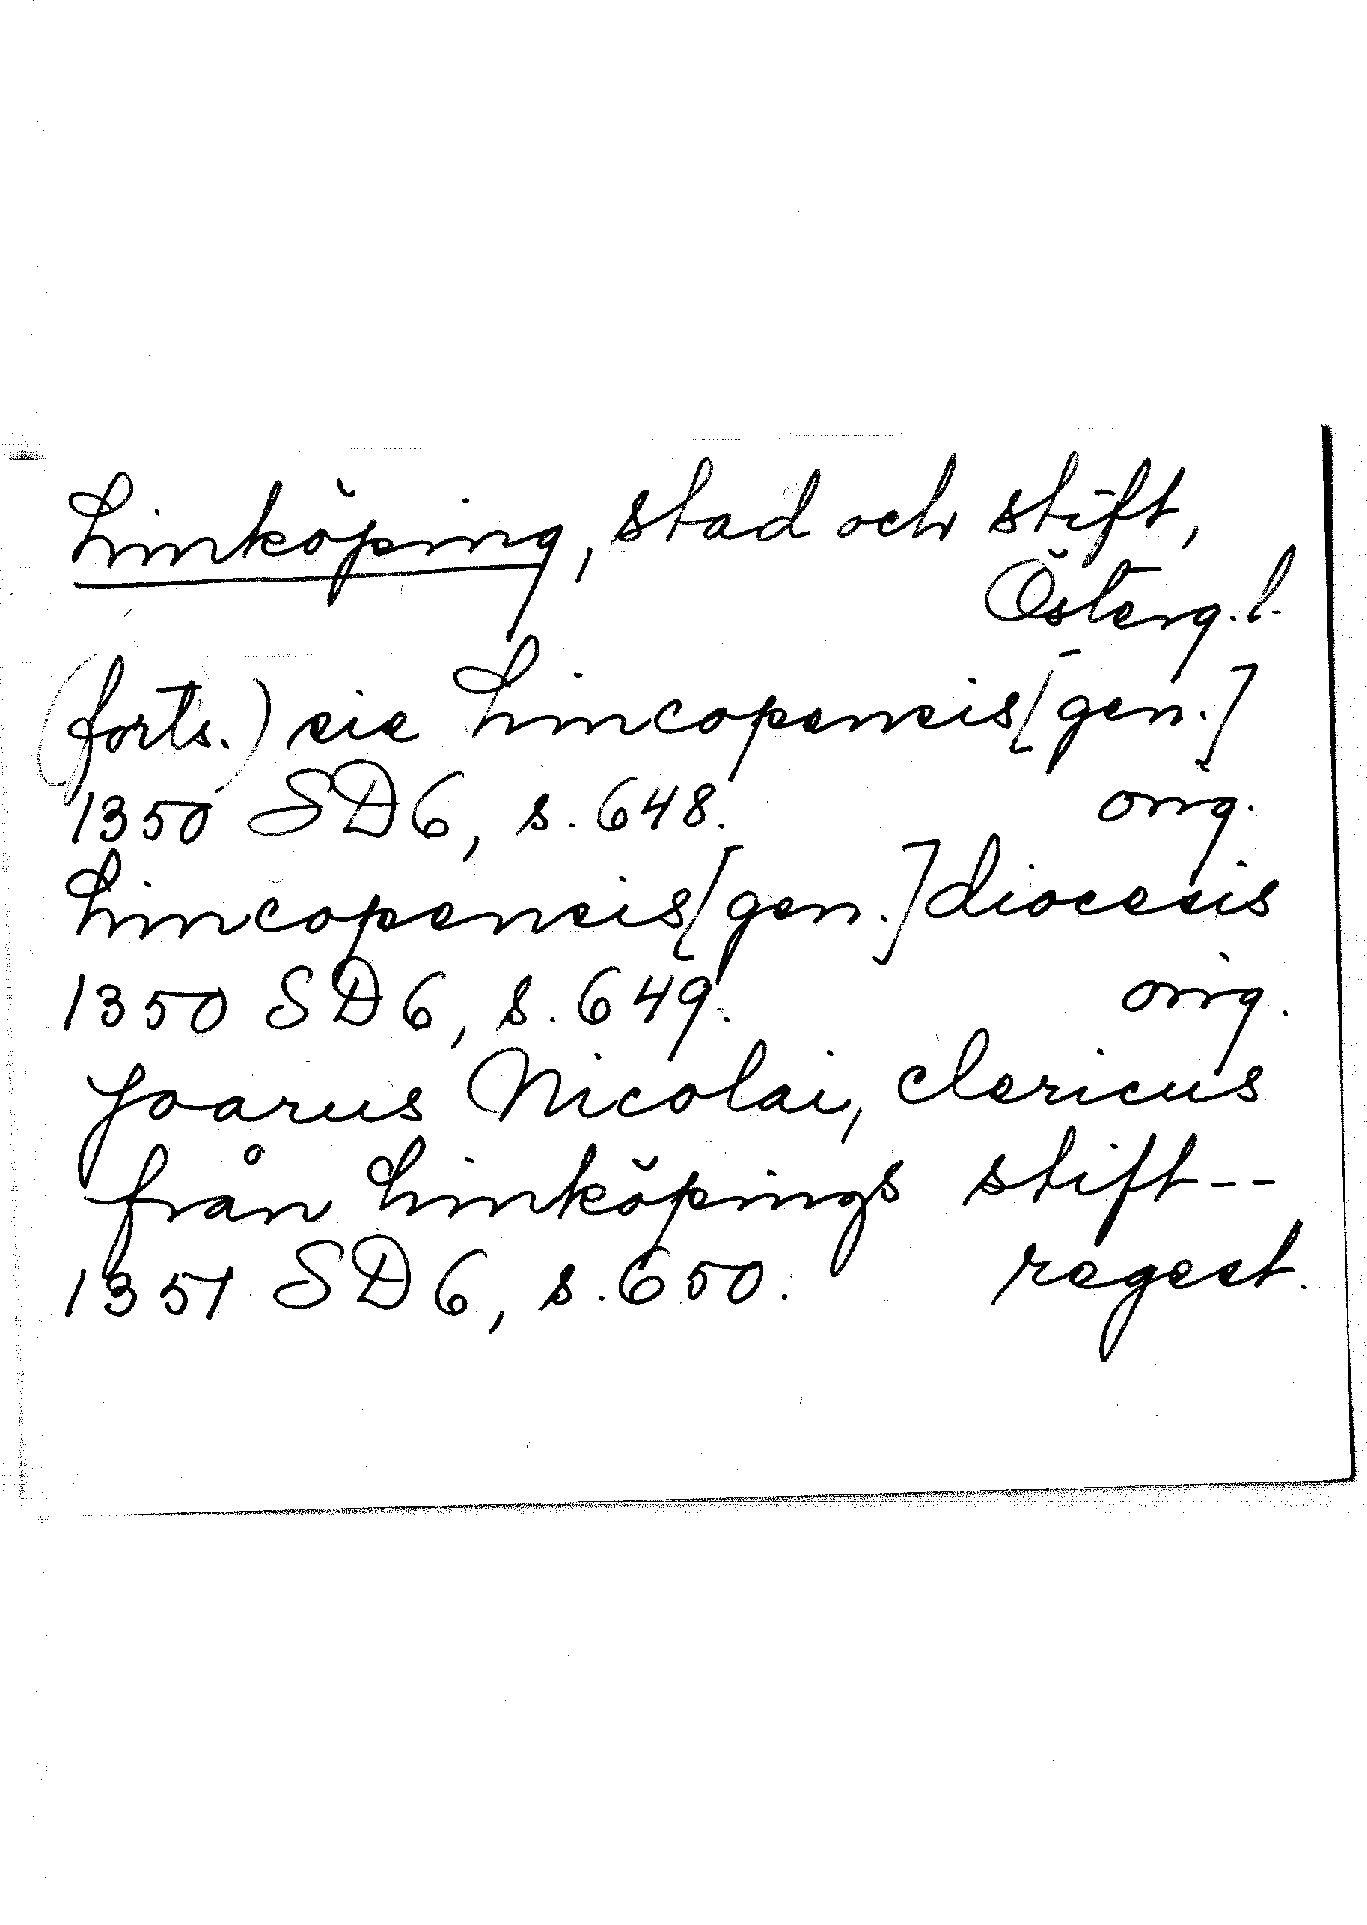 Linköping, stad och stift,
Österg.l.
(forts.) eie Lincopensis [gen.]
1350 SD6, s. 648. orig.
Lincopensis [gen.] diocesis
1350 SD6, s. 649. orig.
Joarus Nicolai, clericus
från Linköpings stift--
1351 SD6, s. 650. regest.